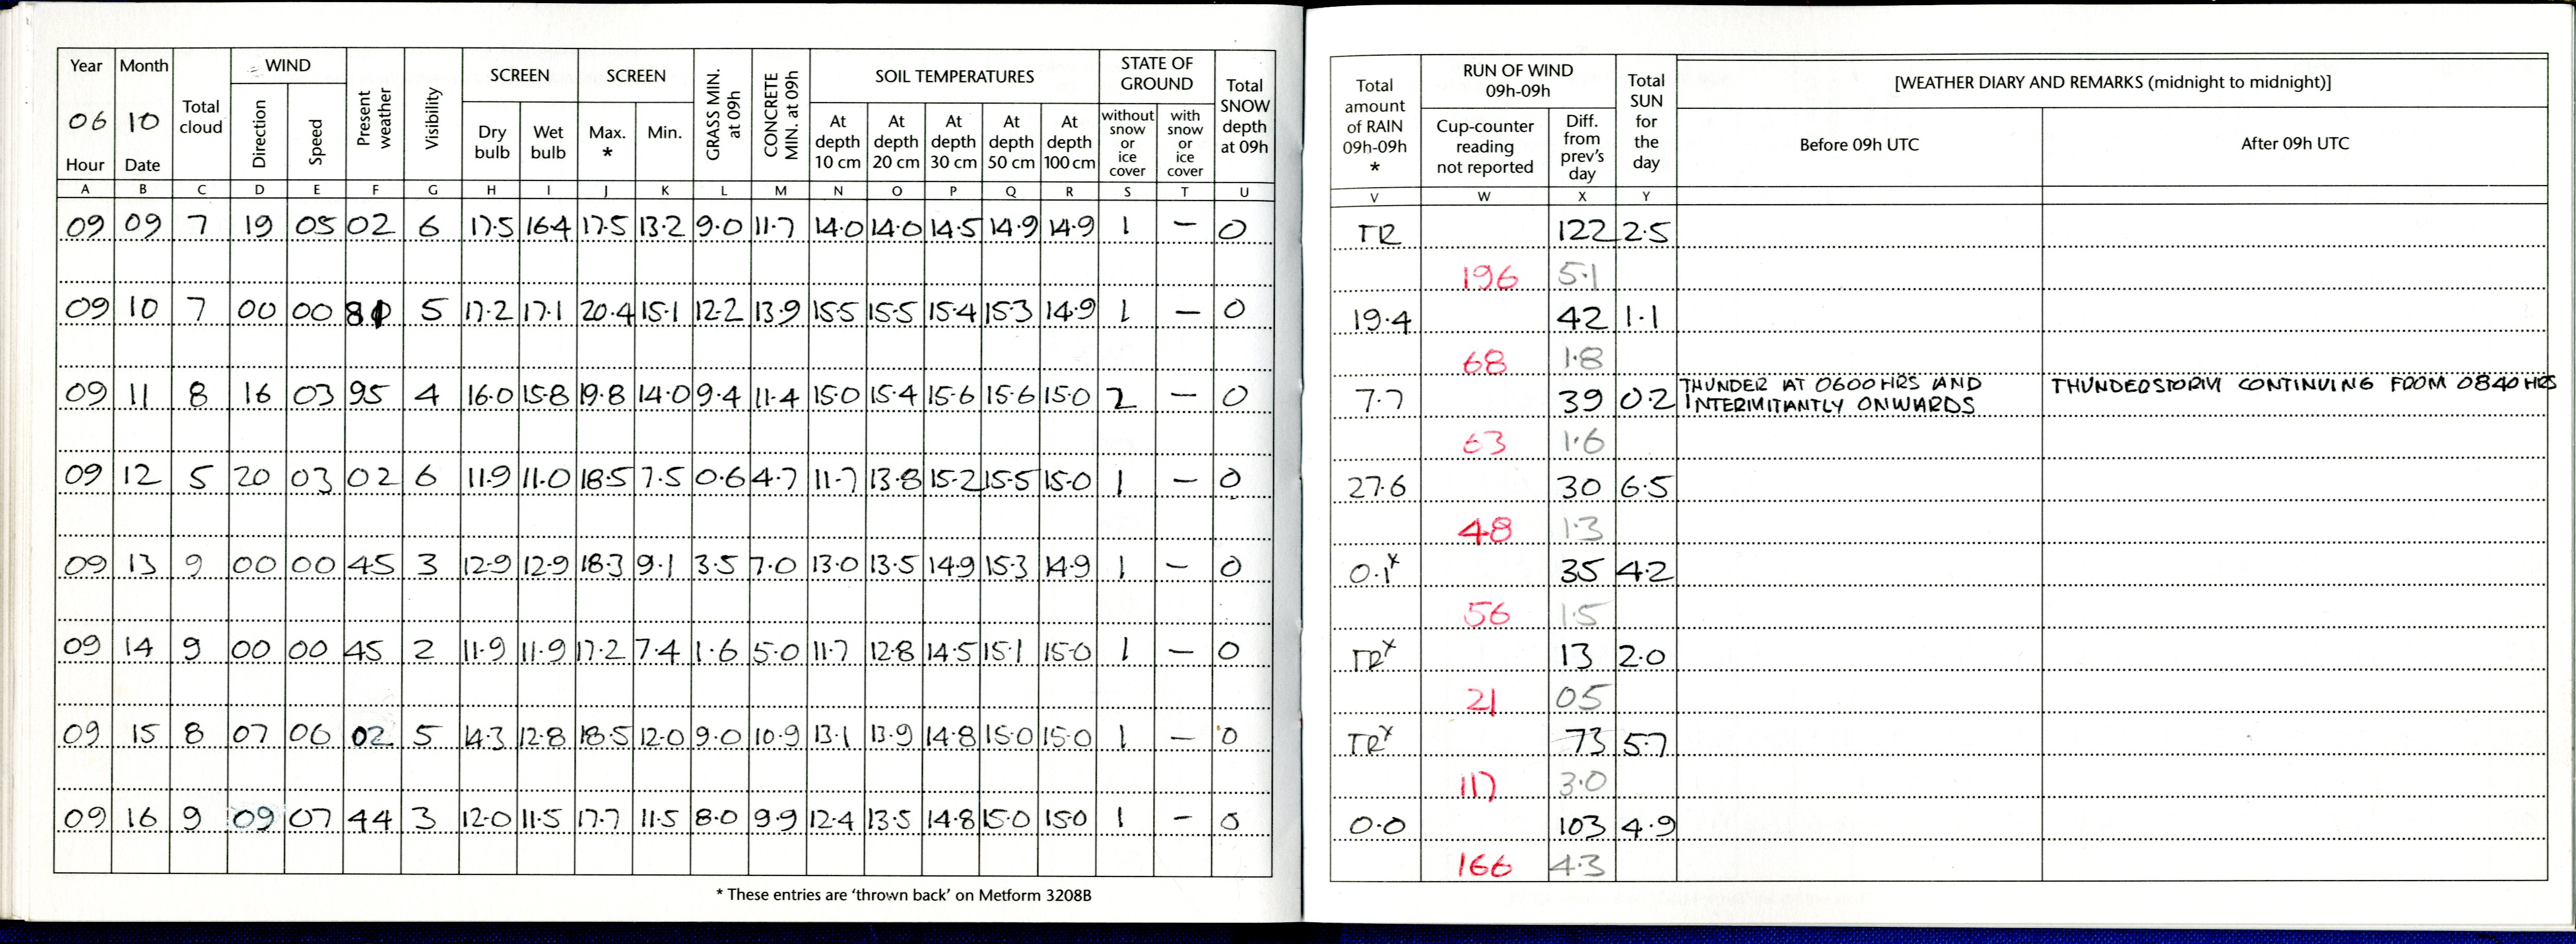 Year Month Total cloud WIND Present weather Visibility SCREEN SCREEN GRASS MIN. at 09h CONCRETE MIN. at 09h SOIL TEMPERATURES STATE OF GROUND Total SNOW depth at 09h
06 10 Direction Speed Dry bulb Wet bulb Max. * Min. At depth 10 cm At depth 20 cm At depth 30 cm At depth 50 cm At depth 100 cm without snow or ice cover with snow or ice cover
Hour Date
A B C D E F G H I J K L M N O P Q R S T U
09 09 7 19 05 02 6 17.5 16.4 17.5 13.2 9.0 11.7 14.0 14.0 14.5 14.9 14.9 1 – 0
09 10 7 00 00 80 5 17.2 17.1 20.4 15.1 12.2 13.9 15.5 15.5 15.4 15.3 14.9 1 – 0
09 11 8 16 03 95 4 16.0 15.8 19.8 14.0 9.4 11.4 15.0 15.4 15.6 15.6 15.0 2 – 0
09 12 5 20 03 02 6 11.9 11.0 18.5 7.5 0.6 4.7 11.7 13.8 15.2 15.5 15.0 1 – 0
09 13 9 00 00 45 3 12.9 12.9 18.3 9.1 3.5 7.0 13.0 13.5 14.9 15.3 14.9 1 – 0
09 14 9 00 00 45 2 11.9 11.9 17.2 7.4 1.6 5.0 11.7 12.8 14.5 15.1 15.0 1 – 0
09 15 8 07 06 02 5 14.3 12.8 18.5 12.0 9.0 10.9 13.1 13.9 14.8 15.0 15.0 1 – 0
09 16 9 09 07 44 3 12.0 11.5 17.7 11.5 8.0 9.9 12.4 13.5 14.8 15.0 15.0 1 – 0
* These entries are ‘thrown back’ on Metform 3208B
Total amount of RAIN 09h-09h * RUN OF WIND 09h-09h Total SUN for the day [WEATHER DIARY AND REMARKS (midnight to midnight)]
Cup-counter reading not reported Diff. from prev's day Before 09h UTC After 09h UTC
V W X Y
TR 122 2.5
196 5.1
19.4 42 1.1
68 1.8
7.7 39 0.2 THUNDER AT 0600HRS AND THUNDERSTORM CONTINUING FROM 0840HRS
INTERMITANTLY ONWARDS
63 1.6
27.6 30 6.5
48 1.3
0.1* 35 4.2
56 1.5
TR* 13 2.0
21 0.5
TR* 73 5.7
117 3.0
0.0 103 4.9
166 4.3